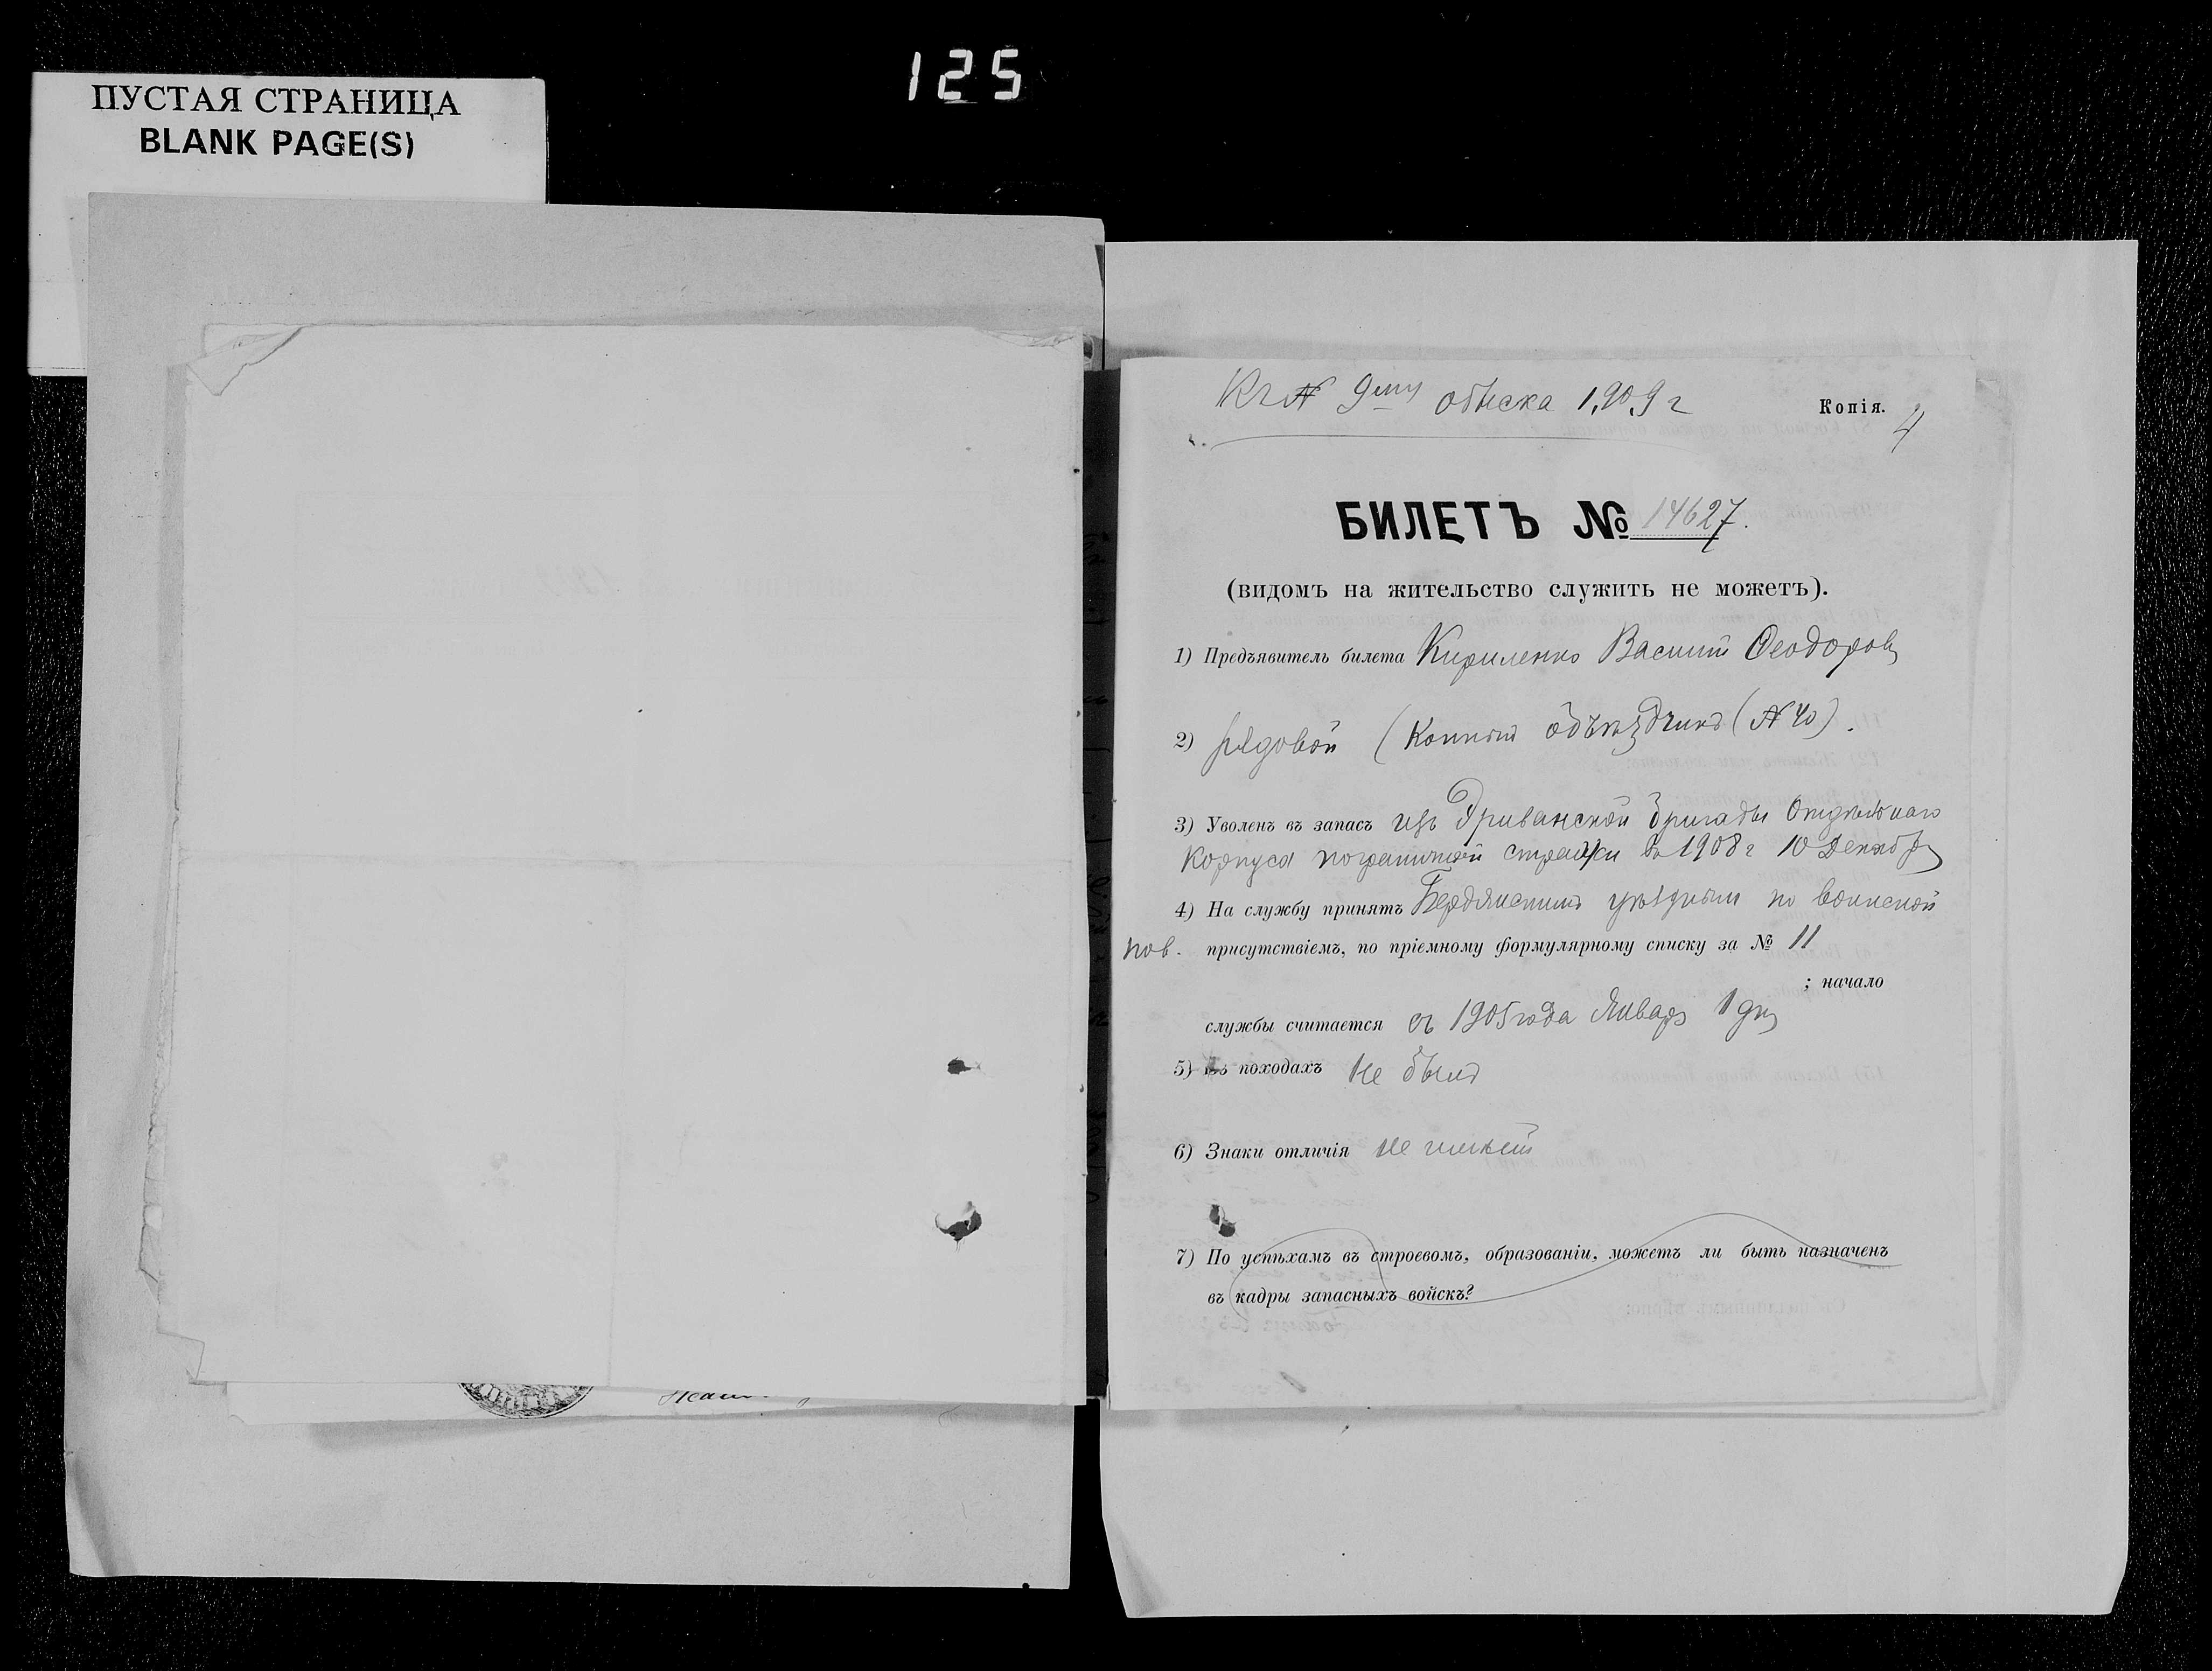 125
ПУСТАЯ СТРАНИЦА
BLANK PAGE(S)
Къ № 9му обыска 1909 г
Копія.
4
БИЛЕТЪ № 14627.
(видомъ на жительство служить не можетъ).
1) Предъявитель билета Кириленко Василій Ѳеодоровъ
2) рядовой (Конный объѣздчикъ (№ 40).
3) Уволенъ въ запасъ изъ Эриванской бригады Отдѣльнаго
Корпуса пограничной стражи въ 1908 г 10 Декабря
4) На службу принятъ Бердянскимъ уѣзднымъ по воинской
пов. присутствіемъ, по пріемному формулярному списку за № 11
; начало
службы считается съ 1905 года Января 1 дня
5) Въ походахъ не былъ
6) Знаки отличія не имѣетъ
7) По успѣхамъ въ строевомъ, образованіи, можетъ ли быть назначенъ
въ кадры запасныхъ войскъ?